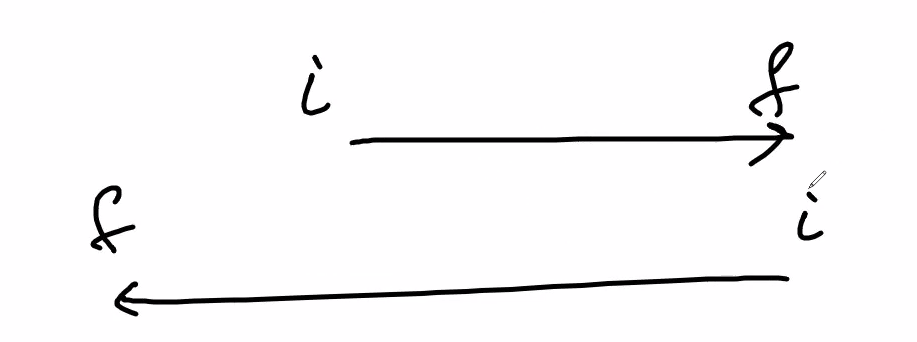 i f
f i